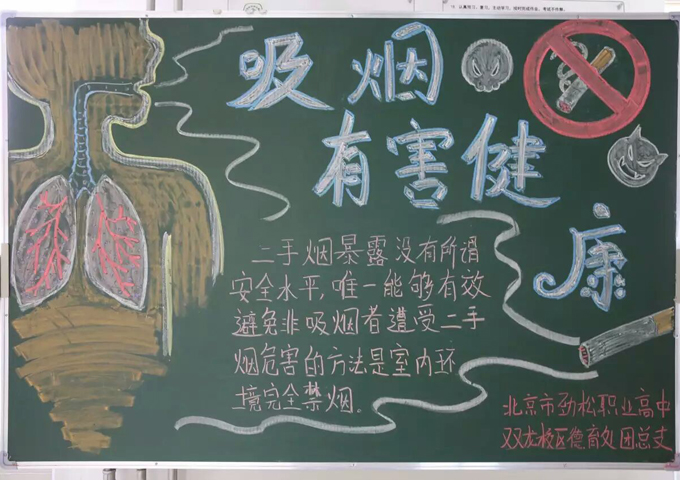 吸烟
有害健
康
二手烟暴露没有所谓
安全水平,唯一能够有效
避免非吸烟者遭受二手
烟危害的方法是室内环
境完全禁烟。
北京市劲松职业高中
双龙校区德育处团总支